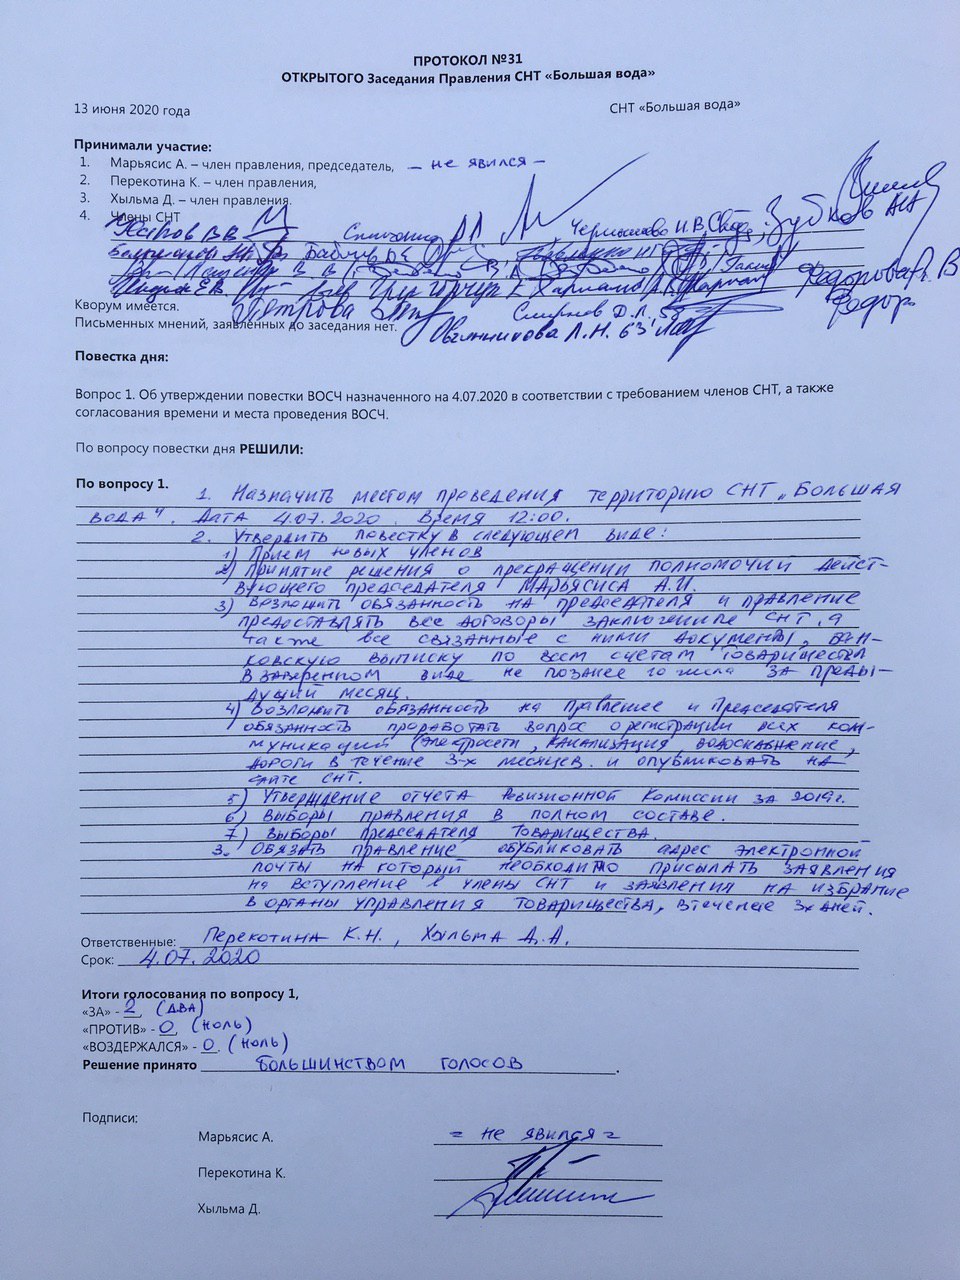 ПРОТОКОЛ №31
ОТКРЫТОГО Заседания Правления СНТ «Большая вода»
13 июня 2020 года
СНТ «Большая вода»
Принимали участие:
1. Марьясис А. – член правления, председатель, – не явился –
2. Перекотина К. – член правления,
3. Хыльма Д. – член правления.
4. Члены СНТ
Чернышова Н.В. Зубков АН
Федорова В
Петрова Смирнов Д.Л. 58
Кворум имеется.
Письменных мнений, заявленных до заседания нет.
Овчинникова Л.Н. 63
Повестка дня:
Вопрос 1. Об утверждении повестки ВОСЧ назначенного на 4.07.2020 в соответствии с требованием членов СНТ, а также
согласования времени и места проведения ВОСЧ.
По вопросу повестки дня РЕШИЛИ:
По вопросу 1.
1. Назначить местом проведения территорию СНТ „Большая
вода". Дата 4.07.2020. Время 12:00.
2. Утвердить повестку в следующем виде:
1) Прием новых членов
2) Принятие решения о прекращении полномочий дейст-
вующего председателя Марьясиса А.И.
3) Возложить обязанность на председателя и правление
предоставлять все договоры заключение СНТ, а
также все связанные с ними документы, бан-
ковскую выписку по всем счетам товарищества
в заверенном виде не позднее 10 числа за преды-
дущий месяц.
4) Возложить обязанность на Правление и Председателя
обязанность проработать вопрос о регистрации всех ком-
муникаций (электросети, канализация, водоснабжение,
дороги в течение 3-х месяцев. и опубликовать на
сайте СНТ.
5) Утверждение отчета Ревизионной Комиссии за 2019г.
6) Выборы правления в полном составе.
7) Выборы председателя товарищества.
3. Обязать правление опубликовать адрес электронной
почты на который необходимо присылать заявления
на вступление в члены СНТ и заявления на избрание
в органы управления товарищества, втечение 3х дней.
Ответственные: Перекотина К.Н., Хыльма Д.А.
Срок: 4.07.2020
Итоги голосования по вопросу 1,
«ЗА» - 2 (два)
«ПРОТИВ» - 0 (ноль)
«ВОЗДЕРЖАЛСЯ» - 0. (ноль)
Решение принято большинством голосов.
Подписи:
Марьясис А. – не явился –
Перекотина К.
Хыльма Д.